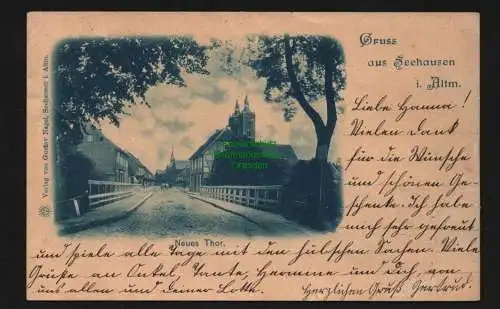 Gruss
aus Seehausen
i. Altm.
Verlag von Gustav Nagel, Seehausen i. Altm.
Neues Thor.
Liebe Hanna!
Vielen Dank
für die Wünsche
und schönen Ge-
schenke. Ich habe
mich sehr gefreut
und spiele alle Tage mit den hübschen Sachen. Viele
Grüße an Onkel, Tante, Hermine und Dich, von
uns allen und deiner Lotte.
Herzlichen Gruß Gertrud.